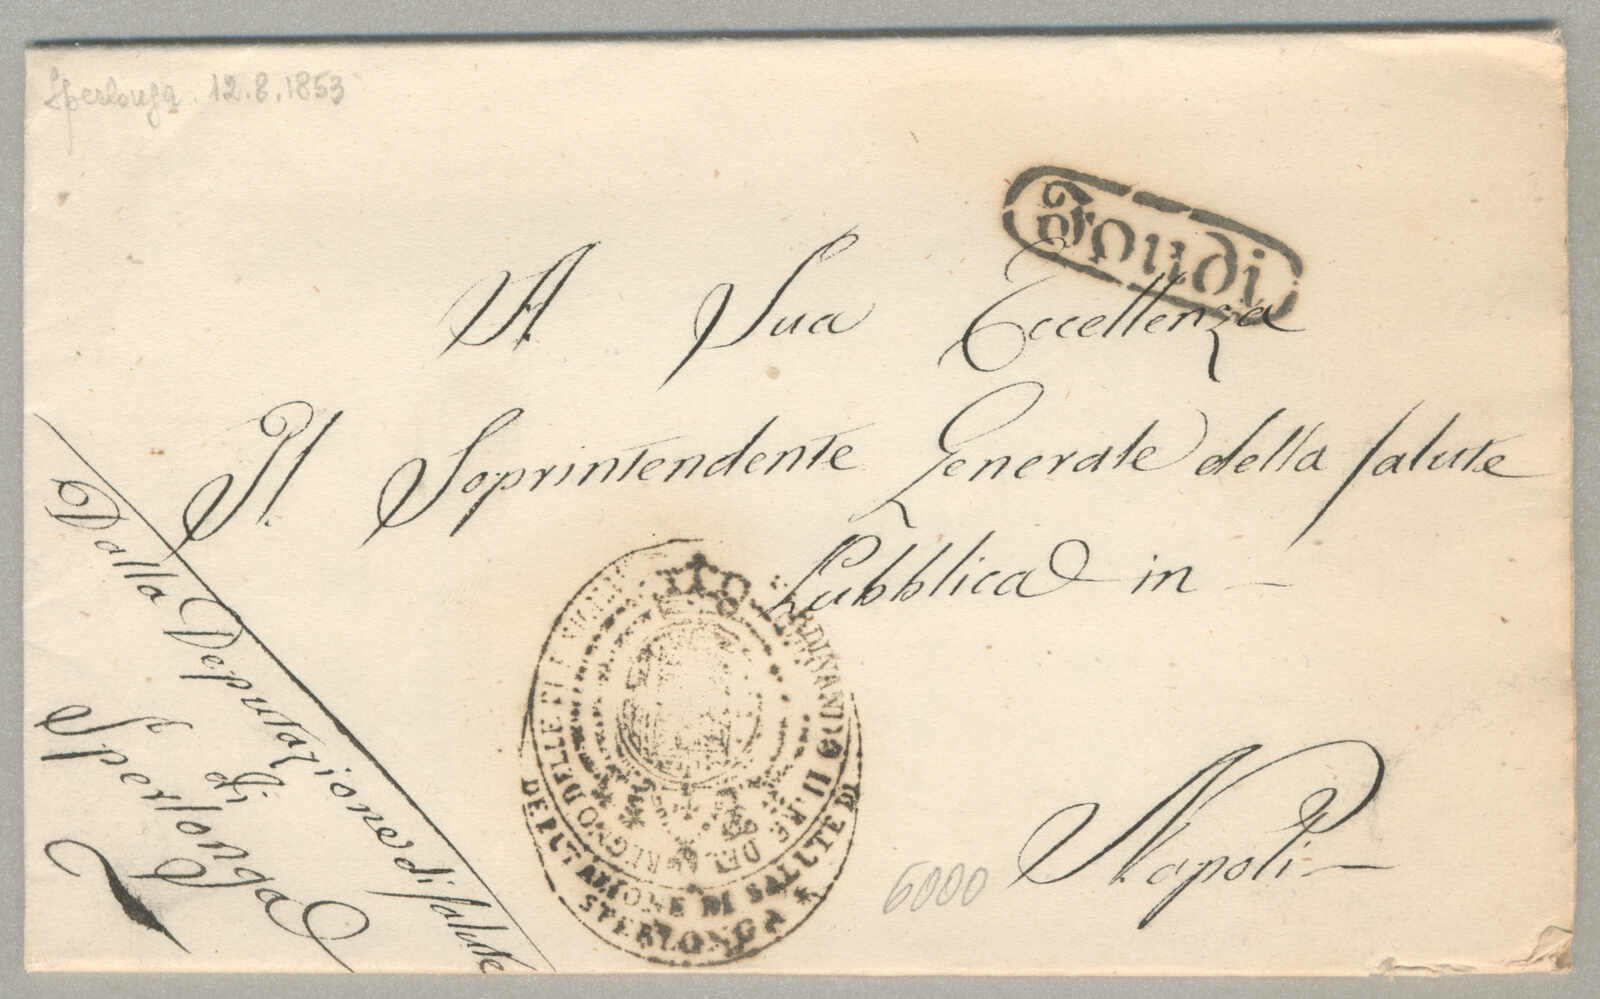 Sperlonga 12.8.1853
Fondi
A Sua Eccellenza
Il Soprintendente Generale della salute
Pubblica in -
Napoli -
Dalla Deputazione di salute
di
Sperlonga
FERDINANDO II. RE
DEL REGNO DELLE
DEPUTAZIONE DI SALUTE DI
SPERLONGA
6000